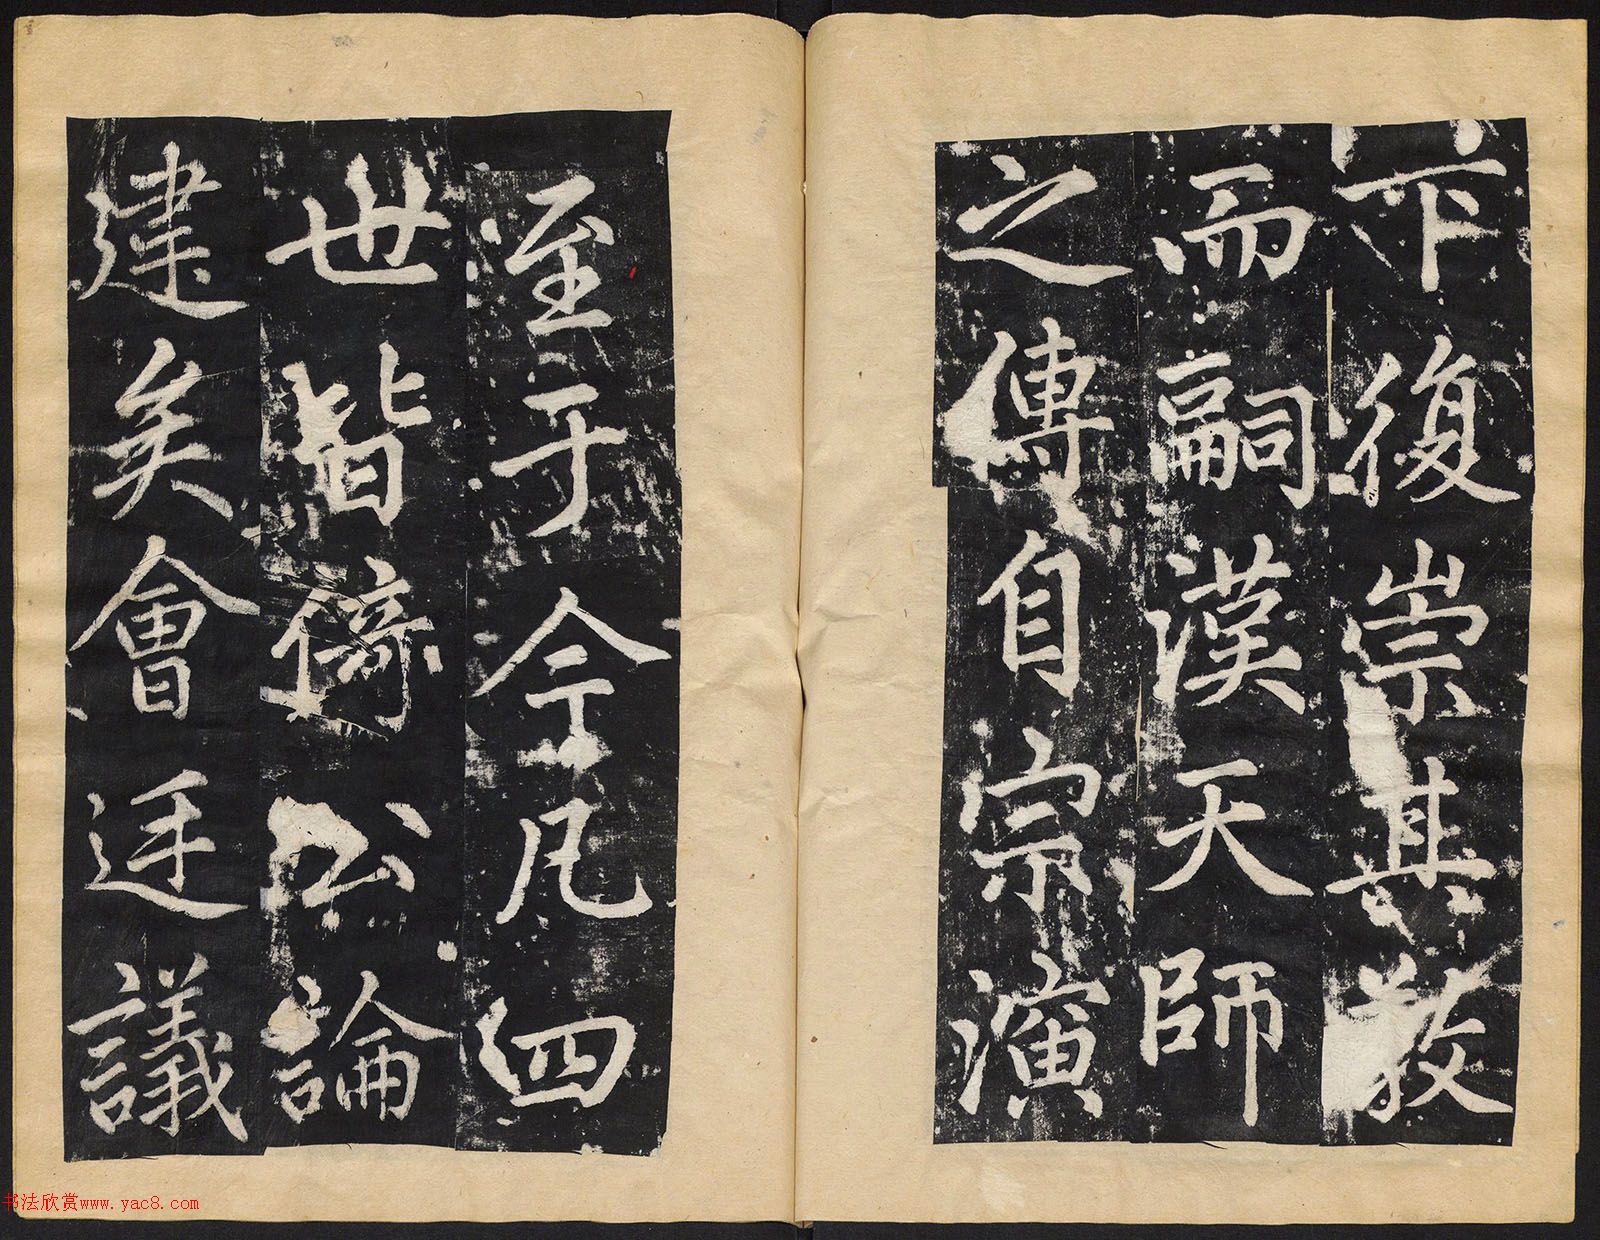 下復崇其教
而嗣漢天師
之傳自宗演
至于今凡四
世皆倚公論
建矣會廷議
书法欣赏www.yac8.com